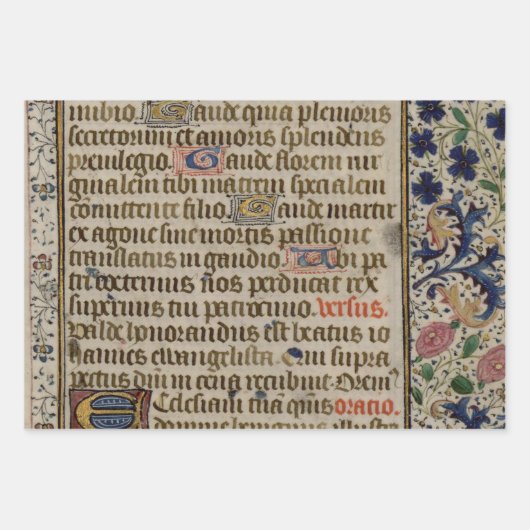 nubio Gaude quia plenioris
secretorum et amoris splendens
preuilegio Gaude florem uir
ginalem tibi matrem specialem
committente filio Gaude martir
ex agone sine mortis passione
translatus in gaudio Ubi pa
tri coeternus nos perducat rex
supernus tui patrocinio versus.
Valde honorandus est beatus io
hannes euuangelista. Qui supra
pectus dñi in cena recubuit. Orem⁹
Ecclesiam tuã quis oratio.